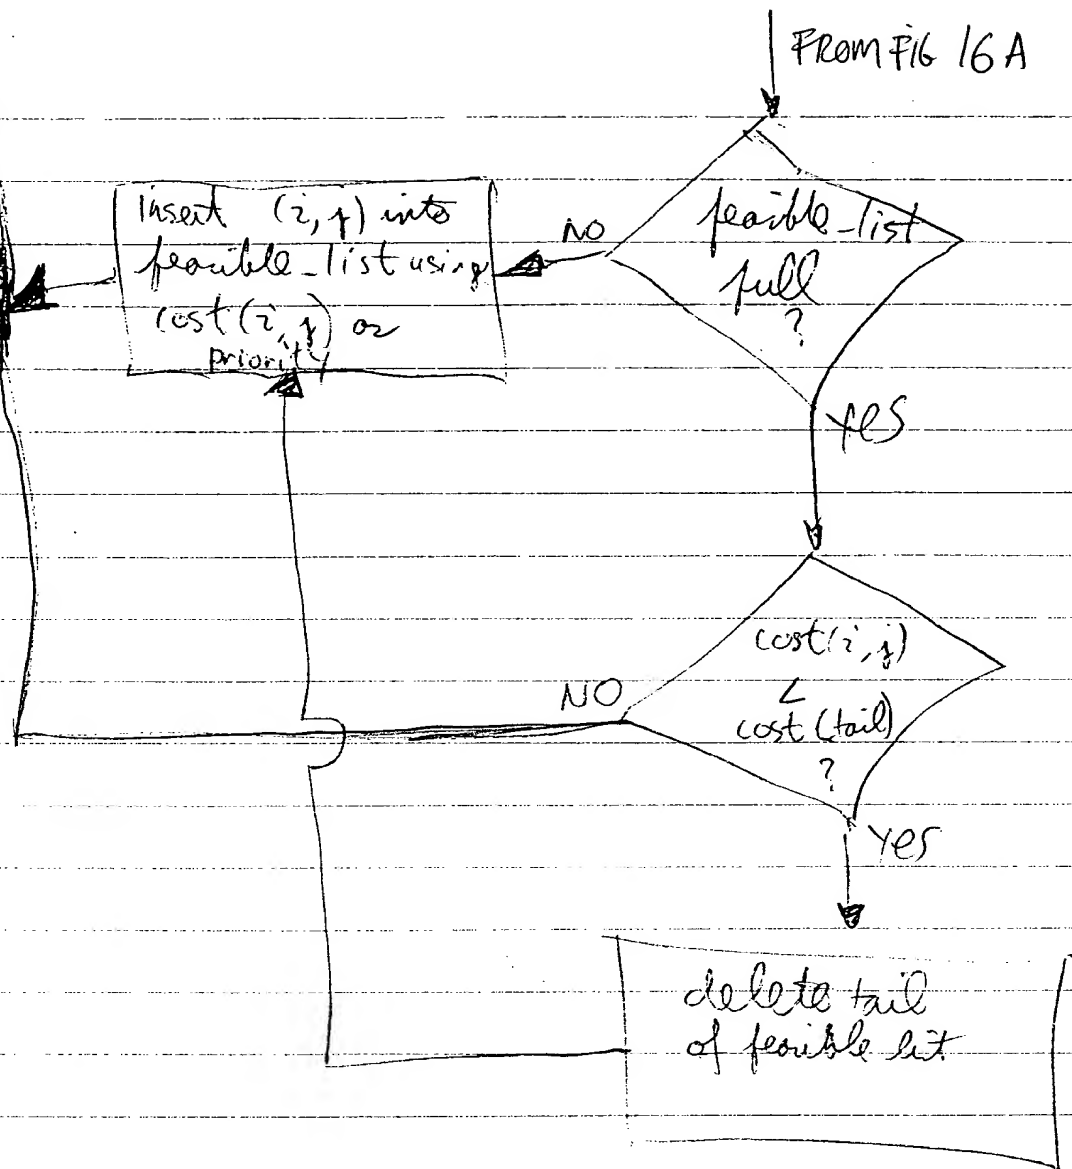 FROM FIG 16A
feasible_list
full
?
NO
insert (i,j) into
feasible_list using
cost(i,j) as
priority
YES
cost(i,j)
<
cost(tail)
?
NO
YES
delete tail
of feasible list